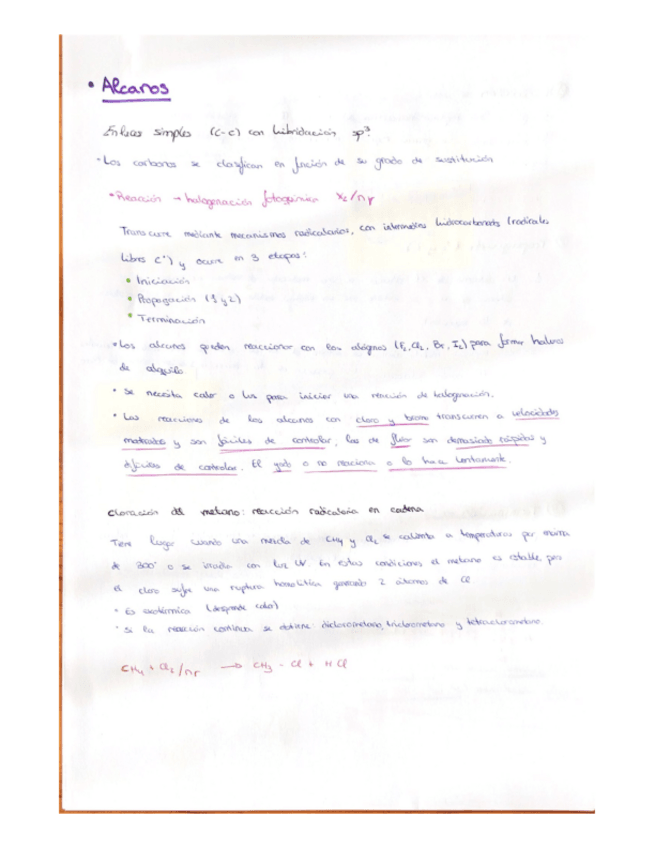 • Alcanos
Enlaces simples (C-C) con hibridación sp³.
• Los carbonos se clasifican en función de su grado de sustitución
• Reacción → halogenación fotoquímica X₂/nγ
Transcurre mediante mecanismos radicalarios, con intermedios hidrocarbonados (radicales
libres C•) y ocurre en 3 etapas:
• Iniciación
• Propagación (1 y 2)
• Terminación
• Los alcanos pueden reaccionar con los alógenos (F₂, Cl₂, Br, I₂) para formar haluros
de alquilo
• Se necesita calor o luz para iniciar una reacción de halogenación.
• Las reacciones de los alcanos con cloro y bromo transcurren a velocidades
moderadas y son fáciles de controlar, las de flúor son demasiado rápidas y
difíciles de controlar. El yodo o no reacciona o lo hace lentamente.
Cloración del metano: reacción radicalaria en cadena
Tiene lugar cuando una mezcla de CH₄ y Cl₂ se calienta a temperaturas por encima
de 300° o se irradia con luz UV. En estas condiciones el metano es estable pero
el cloro sufre una ruptura homolítica generando 2 átomos de Cl
• Es exotérmica (desprende calor)
• Si la reacción continua se obtiene: diclorometano, triclorometano y tetraclorometano.
CH₄ + Cl₂/nγ → CH₃ - Cl + HCl